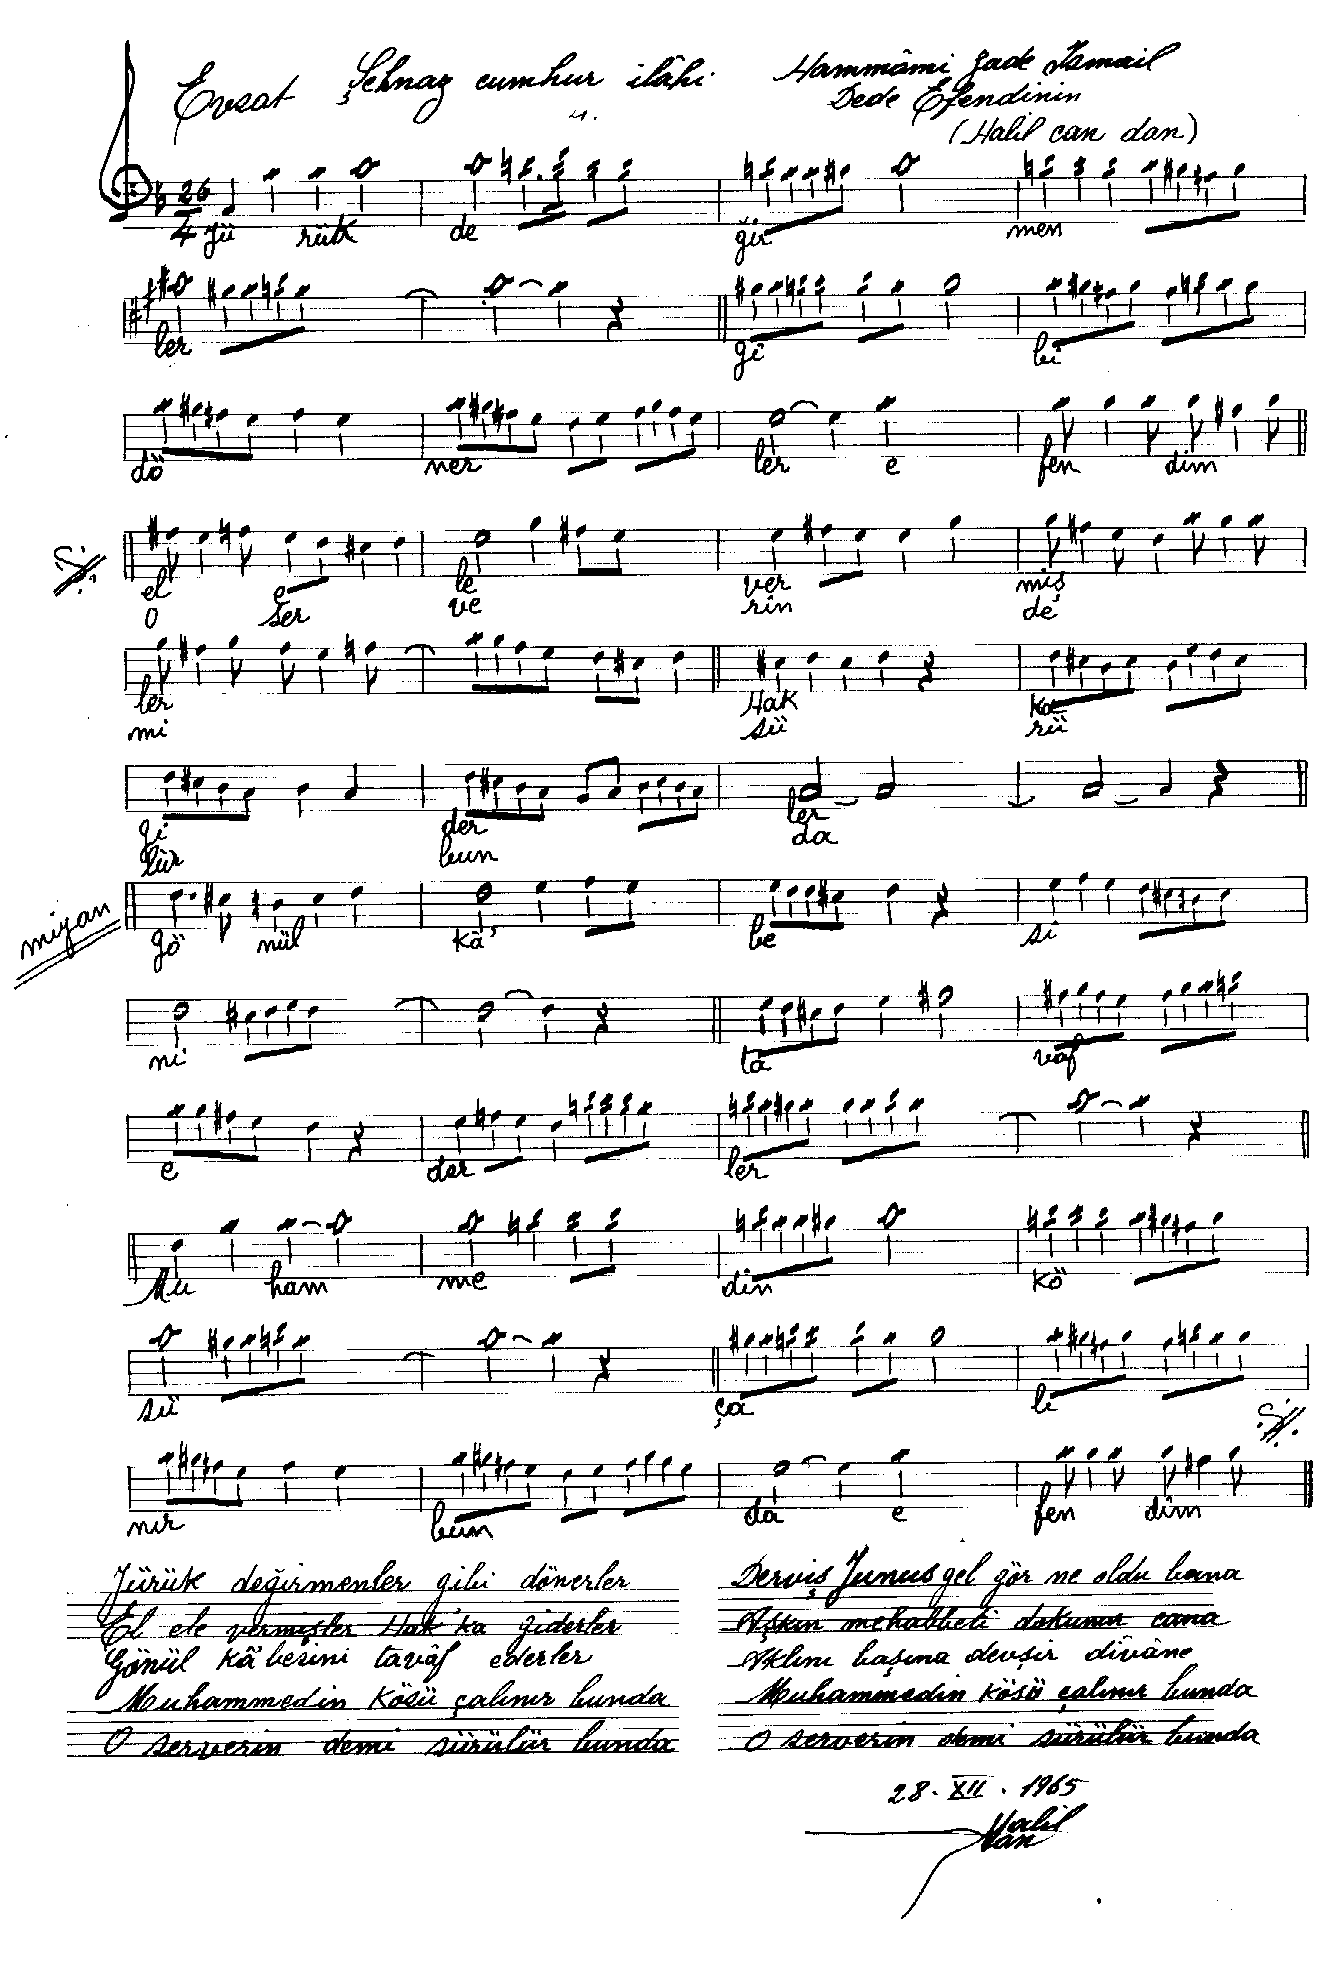 Evsat Şehnaz cumhur ilâhi Hammâmi zade İsmail
Dede Efendinin
(Halil can dan)
26
4
Yü rük de ği men
ler gi bi
dö ner ler e fen dim
el e le ver miş
O ser ve rin de
ler Hak ka
mi sü rü
gi der ler
lür bun da
miyan
gö nül kâ be si
ni ta vaf
e der ler
Mu ham me din kö
sü ça lı
nır bun da e fen dim
Yürük değirmenler gibi dönerler
El ele vermişler Hak'ka giderler
Gönül kâ'besini tavâf ederler
Muhammedin kösü çalınır bunda
O serverin demi sürülür bunda
Derviş Yunus gel gör ne oldu bana
Aşkın mehabbeti dokunur cana
Aklını başına devşir dîvâne
Muhammedin kösü çalınır bunda
O serverin demi sürülür bunda
28. XII. 1965
Halil
Can